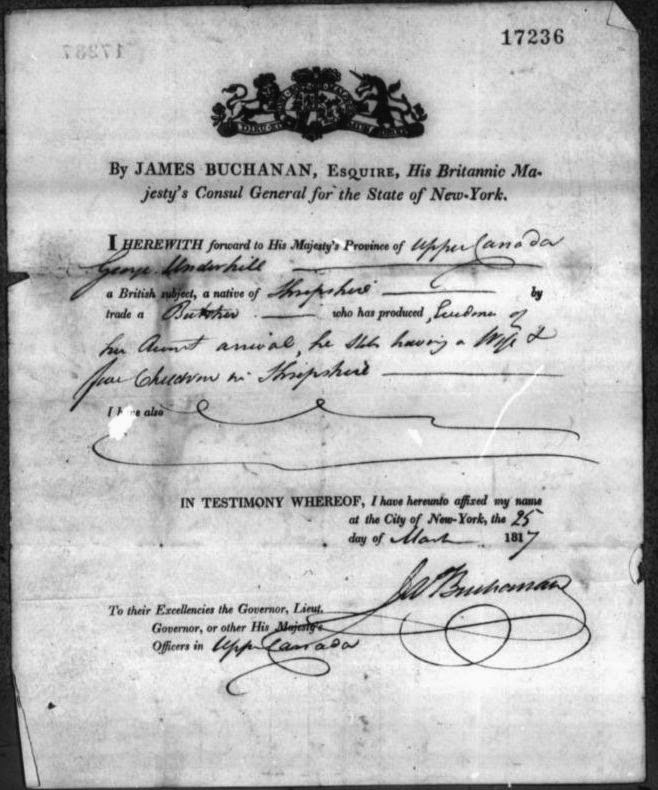 17236
17237
By JAMES BUCHANAN, ESQUIRE, His Britannic Ma-
jesty's Consul General for the State of New-York.
I HEREWITH forward to His Majesty's Province of Upper Canada
George Underhill
a British subject, a native of Shropshire by
trade a Butcher who has produced Evidence of
his arrival, he states having a Wife &
Children in Shropshire
I have also
IN TESTIMONY WHEREOF, I have hereunto affixed my name
at the City of New-York, the 25
day of March 1817
Jas Buchanan
To their Excellencies the Governor, Lieut.
Governor, or other His Majesty's
Officers in Upper Canada